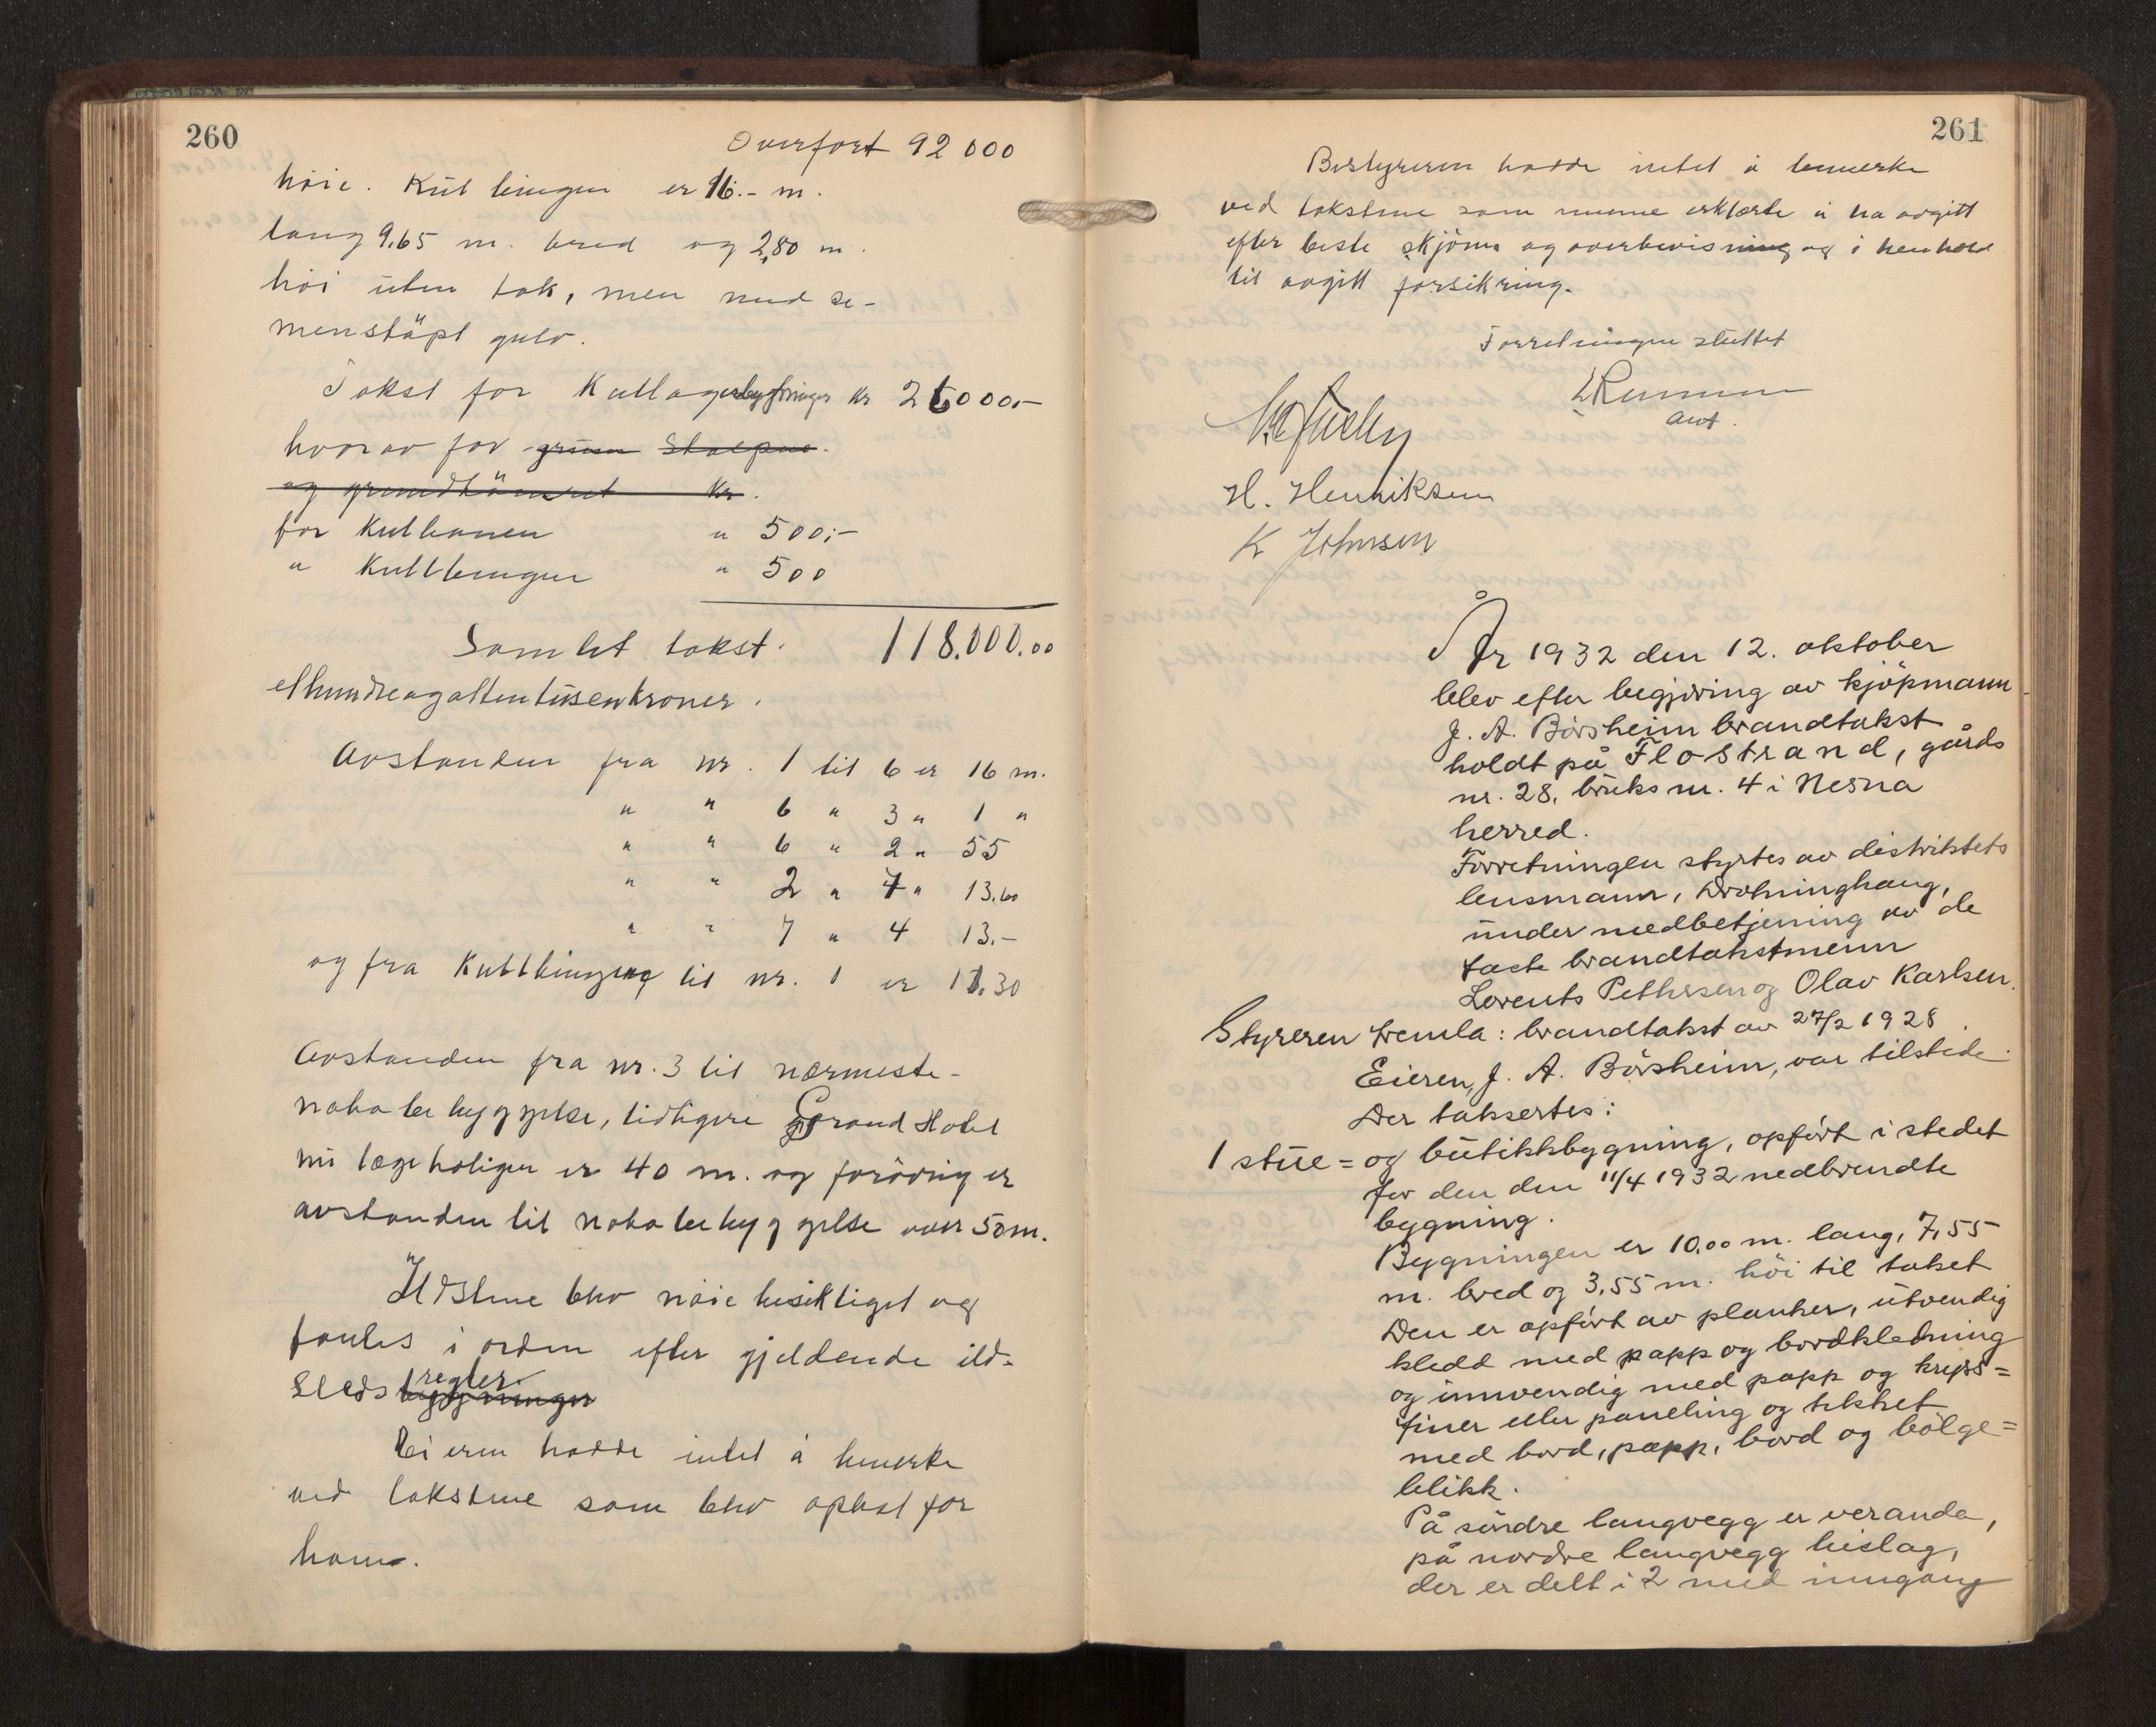 260
Overført 92 000
høie. Kulbingen er 16.- m.
lang 9,65 m. bred og 2,80 m.
høi uten tak, men med se-
menstöpt gulv.
Takst for Kullagerbygninger kr 25000.-
hvorav for grunn Stolpene.
og grundtömret kr.
for Kulbanen " 500;-
" Kullbingen " 500
Samlet takst. 118.000.00
etthundreogattentusenkroner.
Avstanden fra nr. 1 til 6 er 16 m.
" " 6 " 3 " 1 "
" " 6 " 2 " 55
" " 2 " 7 " 13.60
" " 7 " 4 13.-
og fra Kullbingen til nr. 1 er 11.30
Avstanden fra nr. 3 til nærmeste-
nabobebyggelse, tidligere Grand Hotel
nu lægeboligen er 40 m. og forövrig er
avstanden til nabobebyggelse over 50 m.
Ildstene blev nöie besiktiget og
fantes i orden efter gjeldende ild-
steds bygninger regler.
Eieren hadde intet å bemerke
ved takstene som blev oplest for
ham.
261
Bestyreren hadde intet å bemerke
ved takstene som mennene erklærte å ha avgitt
efter beste skjönn og overbevisning og i henhold
til avgitt forsikring.
Forretningen sluttet
aut.
H. Henriksen
K Johnsen
År 1932 den 12. oktober
blev efter begjæring av kjöpmann
J. A. Börsheim brandtakst
holdt på Flostrand, gårds
nr. 28, bruks nr. 4 i Nesna
herred.
Forretningen styrtes av distriktets
lensmann, Drotninghaug,
under medbetjening av de
faste brandtakstmenn
Lorents Pettersen og Olav Karlsen.
Styreren fremla: brandtakst av 27/2 1928.
Eieren, J. A. Börsheim, var tilstede.
Der taksertes:
1 stue= og butikkbygning, opfört i stedet
for den den 11/4 1932 nedbrendte
bygning.
Bygningen er 10,00 m. lang, 7,55
m. bred og 3,55 m. höi til taket
Den er opfört av planker, utvendig
kledd med papp og bordkledning
og innvendig med papp og kryss=
finer eller paneling og tekket
med bord, papp, bord og bölge=
blikk.
På söndre langvegg er veranda,
på nordre langvegg bislag,
der er delt i 2 med inngang